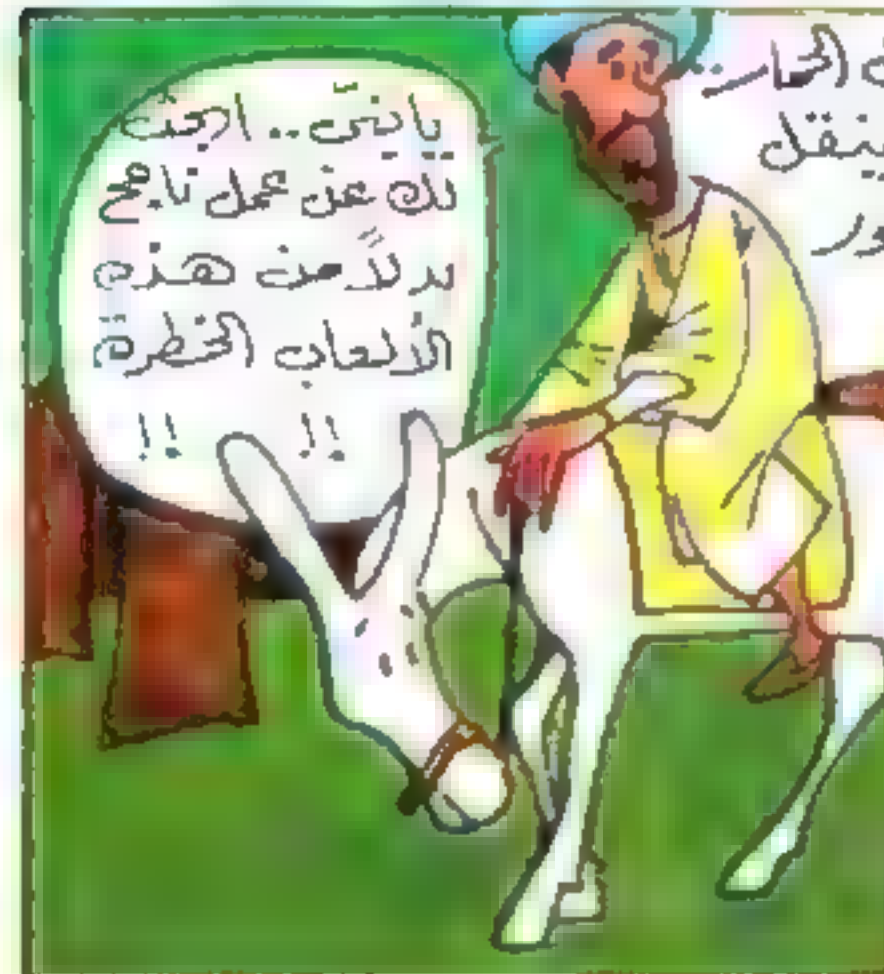 الحمار..
ينقل
يابنيّ.. ابحث
لك عن عمل ناجح
بدلاً من هذه
الألعاب الخطرة
!! !!